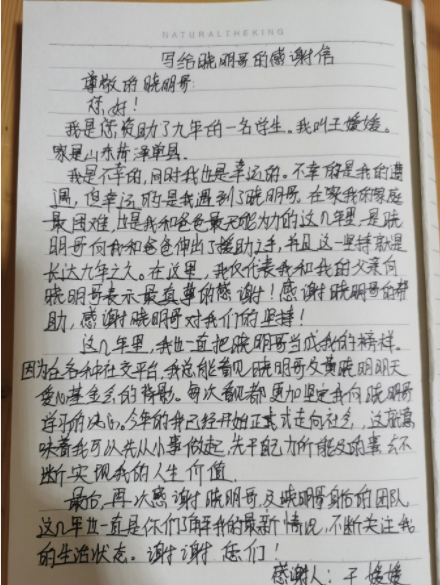 NATURALTHEKING
写给晓明哥的感谢信
尊敬的晓明哥:
您好!
我是您资助了九年的一名学生。我叫王媛媛。
家是山东菏泽单县。
我是不幸的,同时我也是幸运的。不幸的是我的遭
遇,但幸运的是我遇到了晓明哥。在家我的家庭
最困难,也是我和爸爸最无能为力的这几年里,是晓
明哥向我和爸爸伸出了援助之手,并且这一坚持就是
长达九年之久。在这里,我仅代表我和我的父亲向
晓明哥表示最真尊的感谢!感谢晓明哥的帮
助,感谢晓明哥对我们的坚持!
这几年里,我也一直把晓明哥当成我的榜样。
因为在各种社交平台,我总能看见晓明哥及黄晓明明天
爱心基金会的背影。每次看见都更加坚定我向晓明哥
学习的决心。今年的我已经开始正式式走向社会,这就意
味着我可以先从小事做起,先干自己力所能及的事去不
断实现我的人生价值。
最后,再次感谢晓明哥及晓明哥身后的团队
这几年也一直是你们了解我的最新情况,不断关注我
的生活状态。谢谢您们!
感谢人:王媛媛